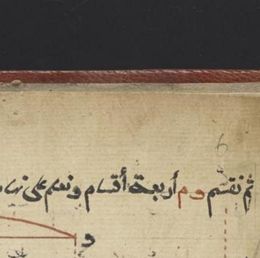 6
ثم نقسم و م أربعة أقسام ونعلم على نها
و